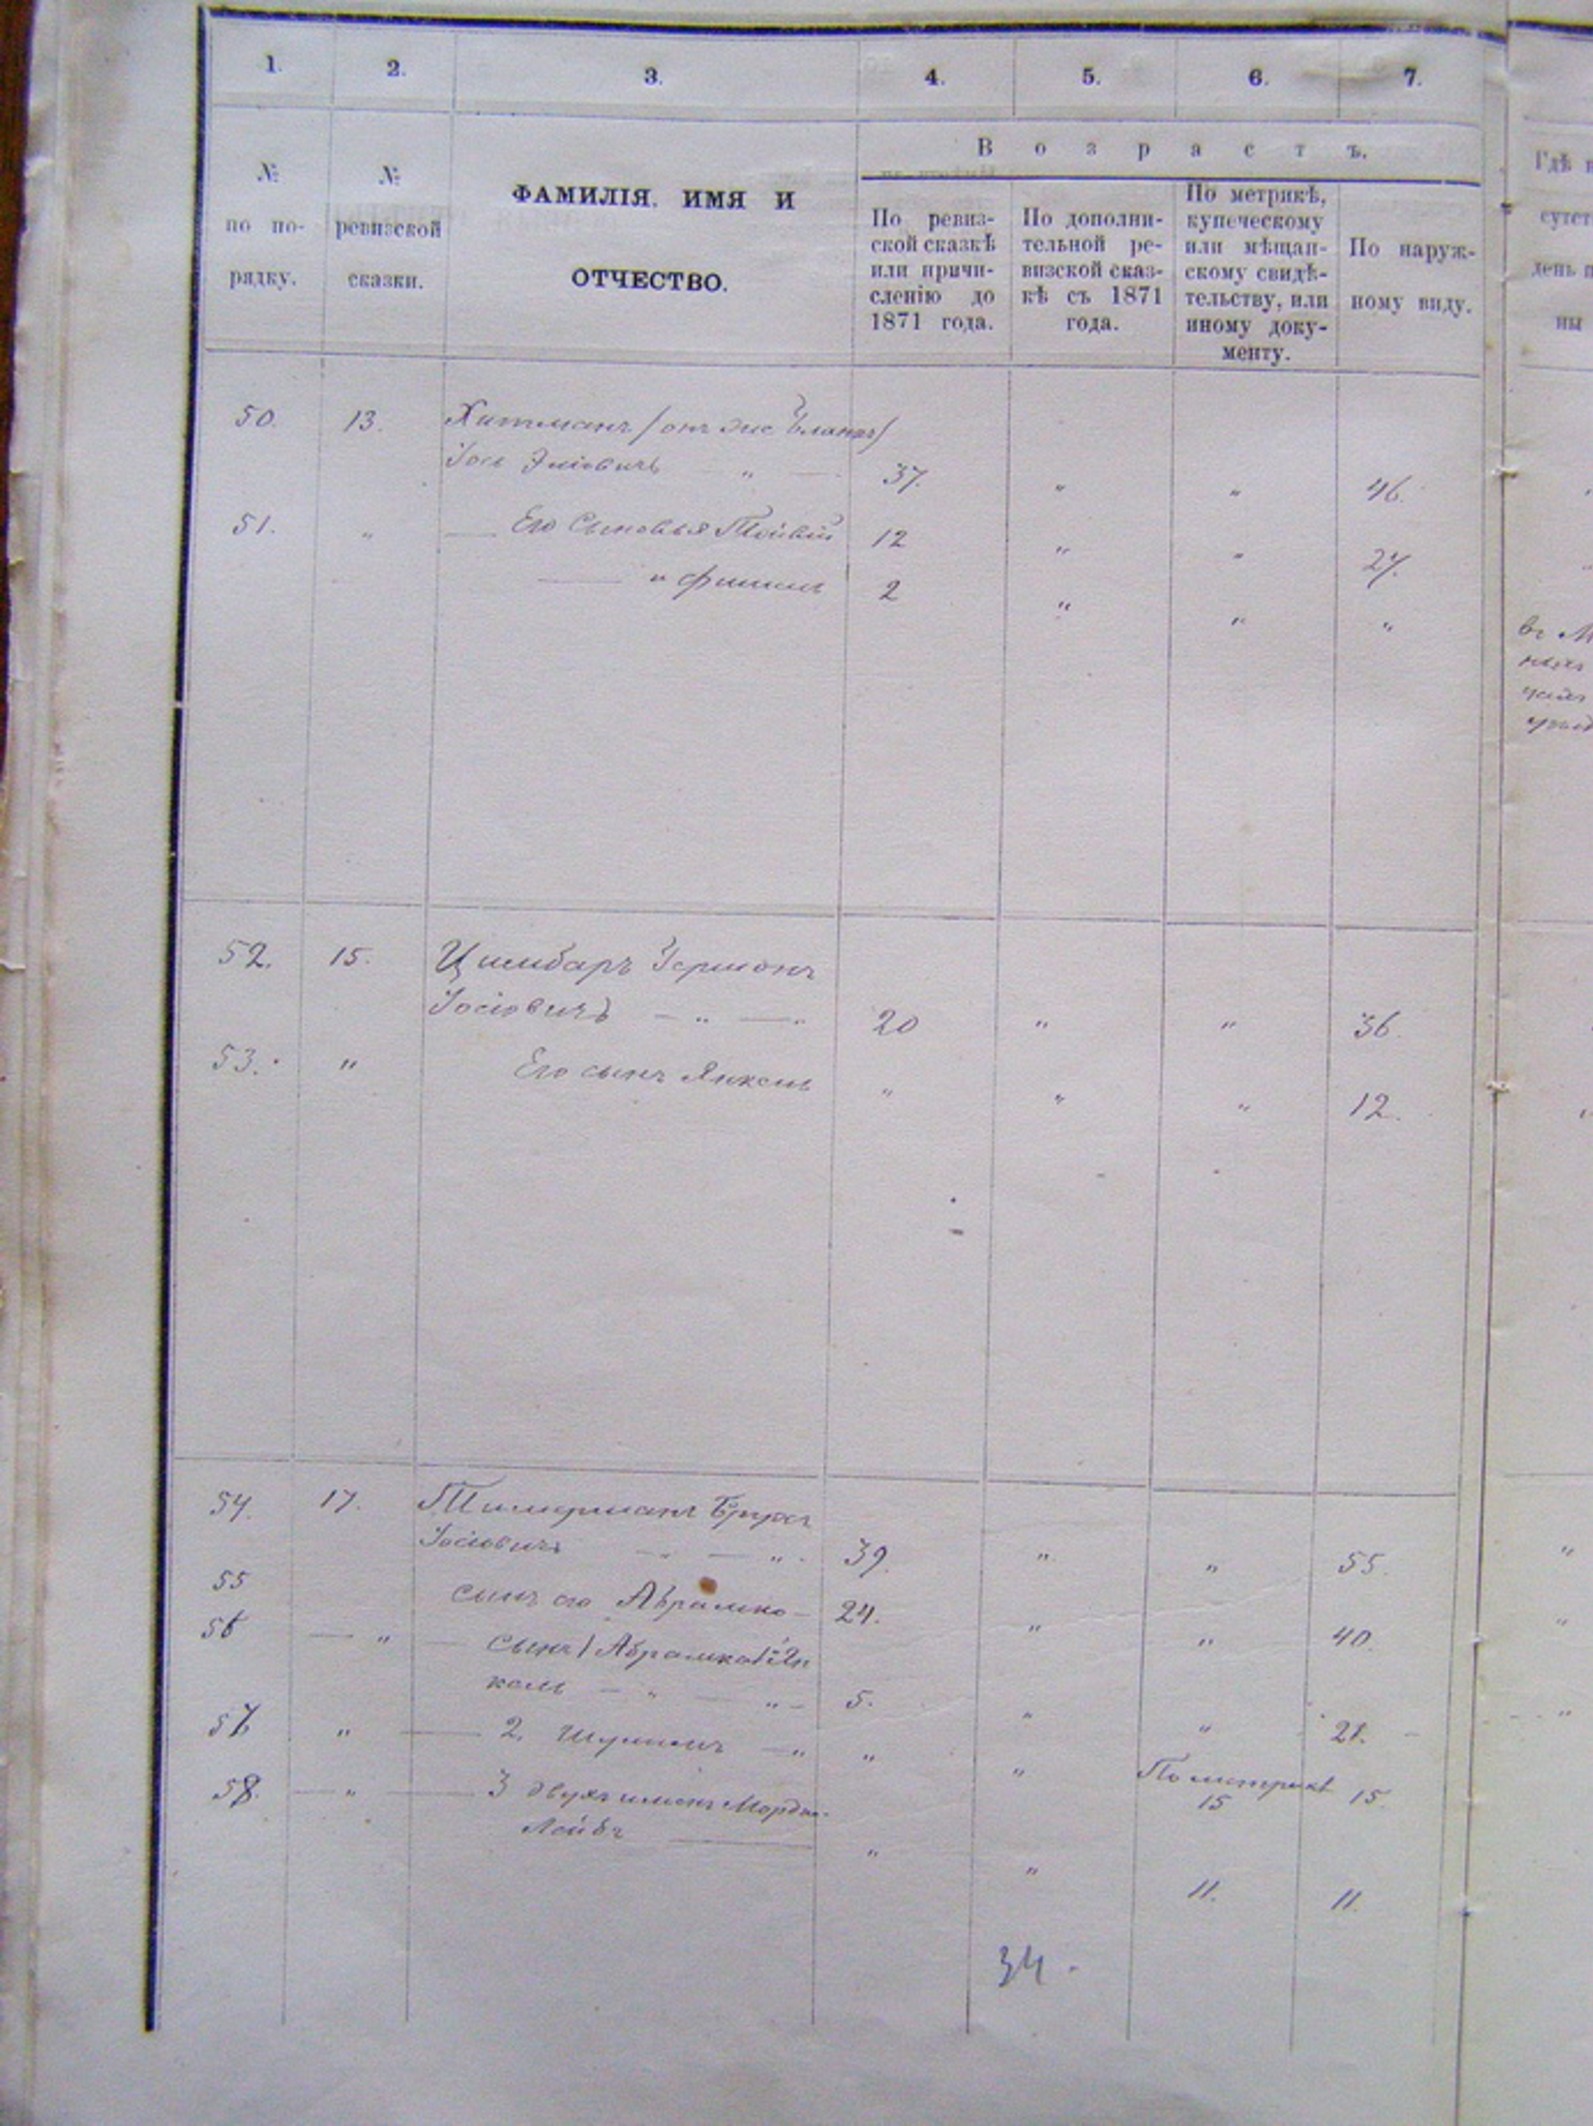 1. 2. 3. 4. 5. 6. 7.
№ по по-рядку.
№ ревизской сказки.
ФАМИЛІЯ, ИМЯ И
ОТЧЕСТВО.
Возрастъ.
По ревиз-
ской сказкѣ
или причи-
сленію до
1871 года.
По дополни-
тельной ре-
визской сказ-
кѣ съ 1871
года.
По метрикѣ,
купеческому
или мѣщан-
скому свидѣ-
тельству, или
иному доку-
менту.
По наруж-
ному виду.
50. 13. Хитманъ (онъ же
Іось 37. " " 46.
51. " Его Сыновья Тойвій 12 " " 27.
и Фишель 2 " " "
52. 15. Цимбаръ Гершонъ
Іосіовичъ 20 " " 36.
53. " Его сынъ Янкель " " " 12.
54. 17. Тимерманъ Брухъ
Іосіовичъ 39. " " 55.
55 сынъ его Абрамко 24. " " 40.
56 " сынъ (Абрамка) 1й Ян
кель 5. " " 21.
57 " 2. Шулимъ " " По метрикѣ 15 15.
58. " 3 двухъ именъ Мордко-
Лейбъ " " 11. 11.
34.
Гдѣ
сутст
день
ны
въ